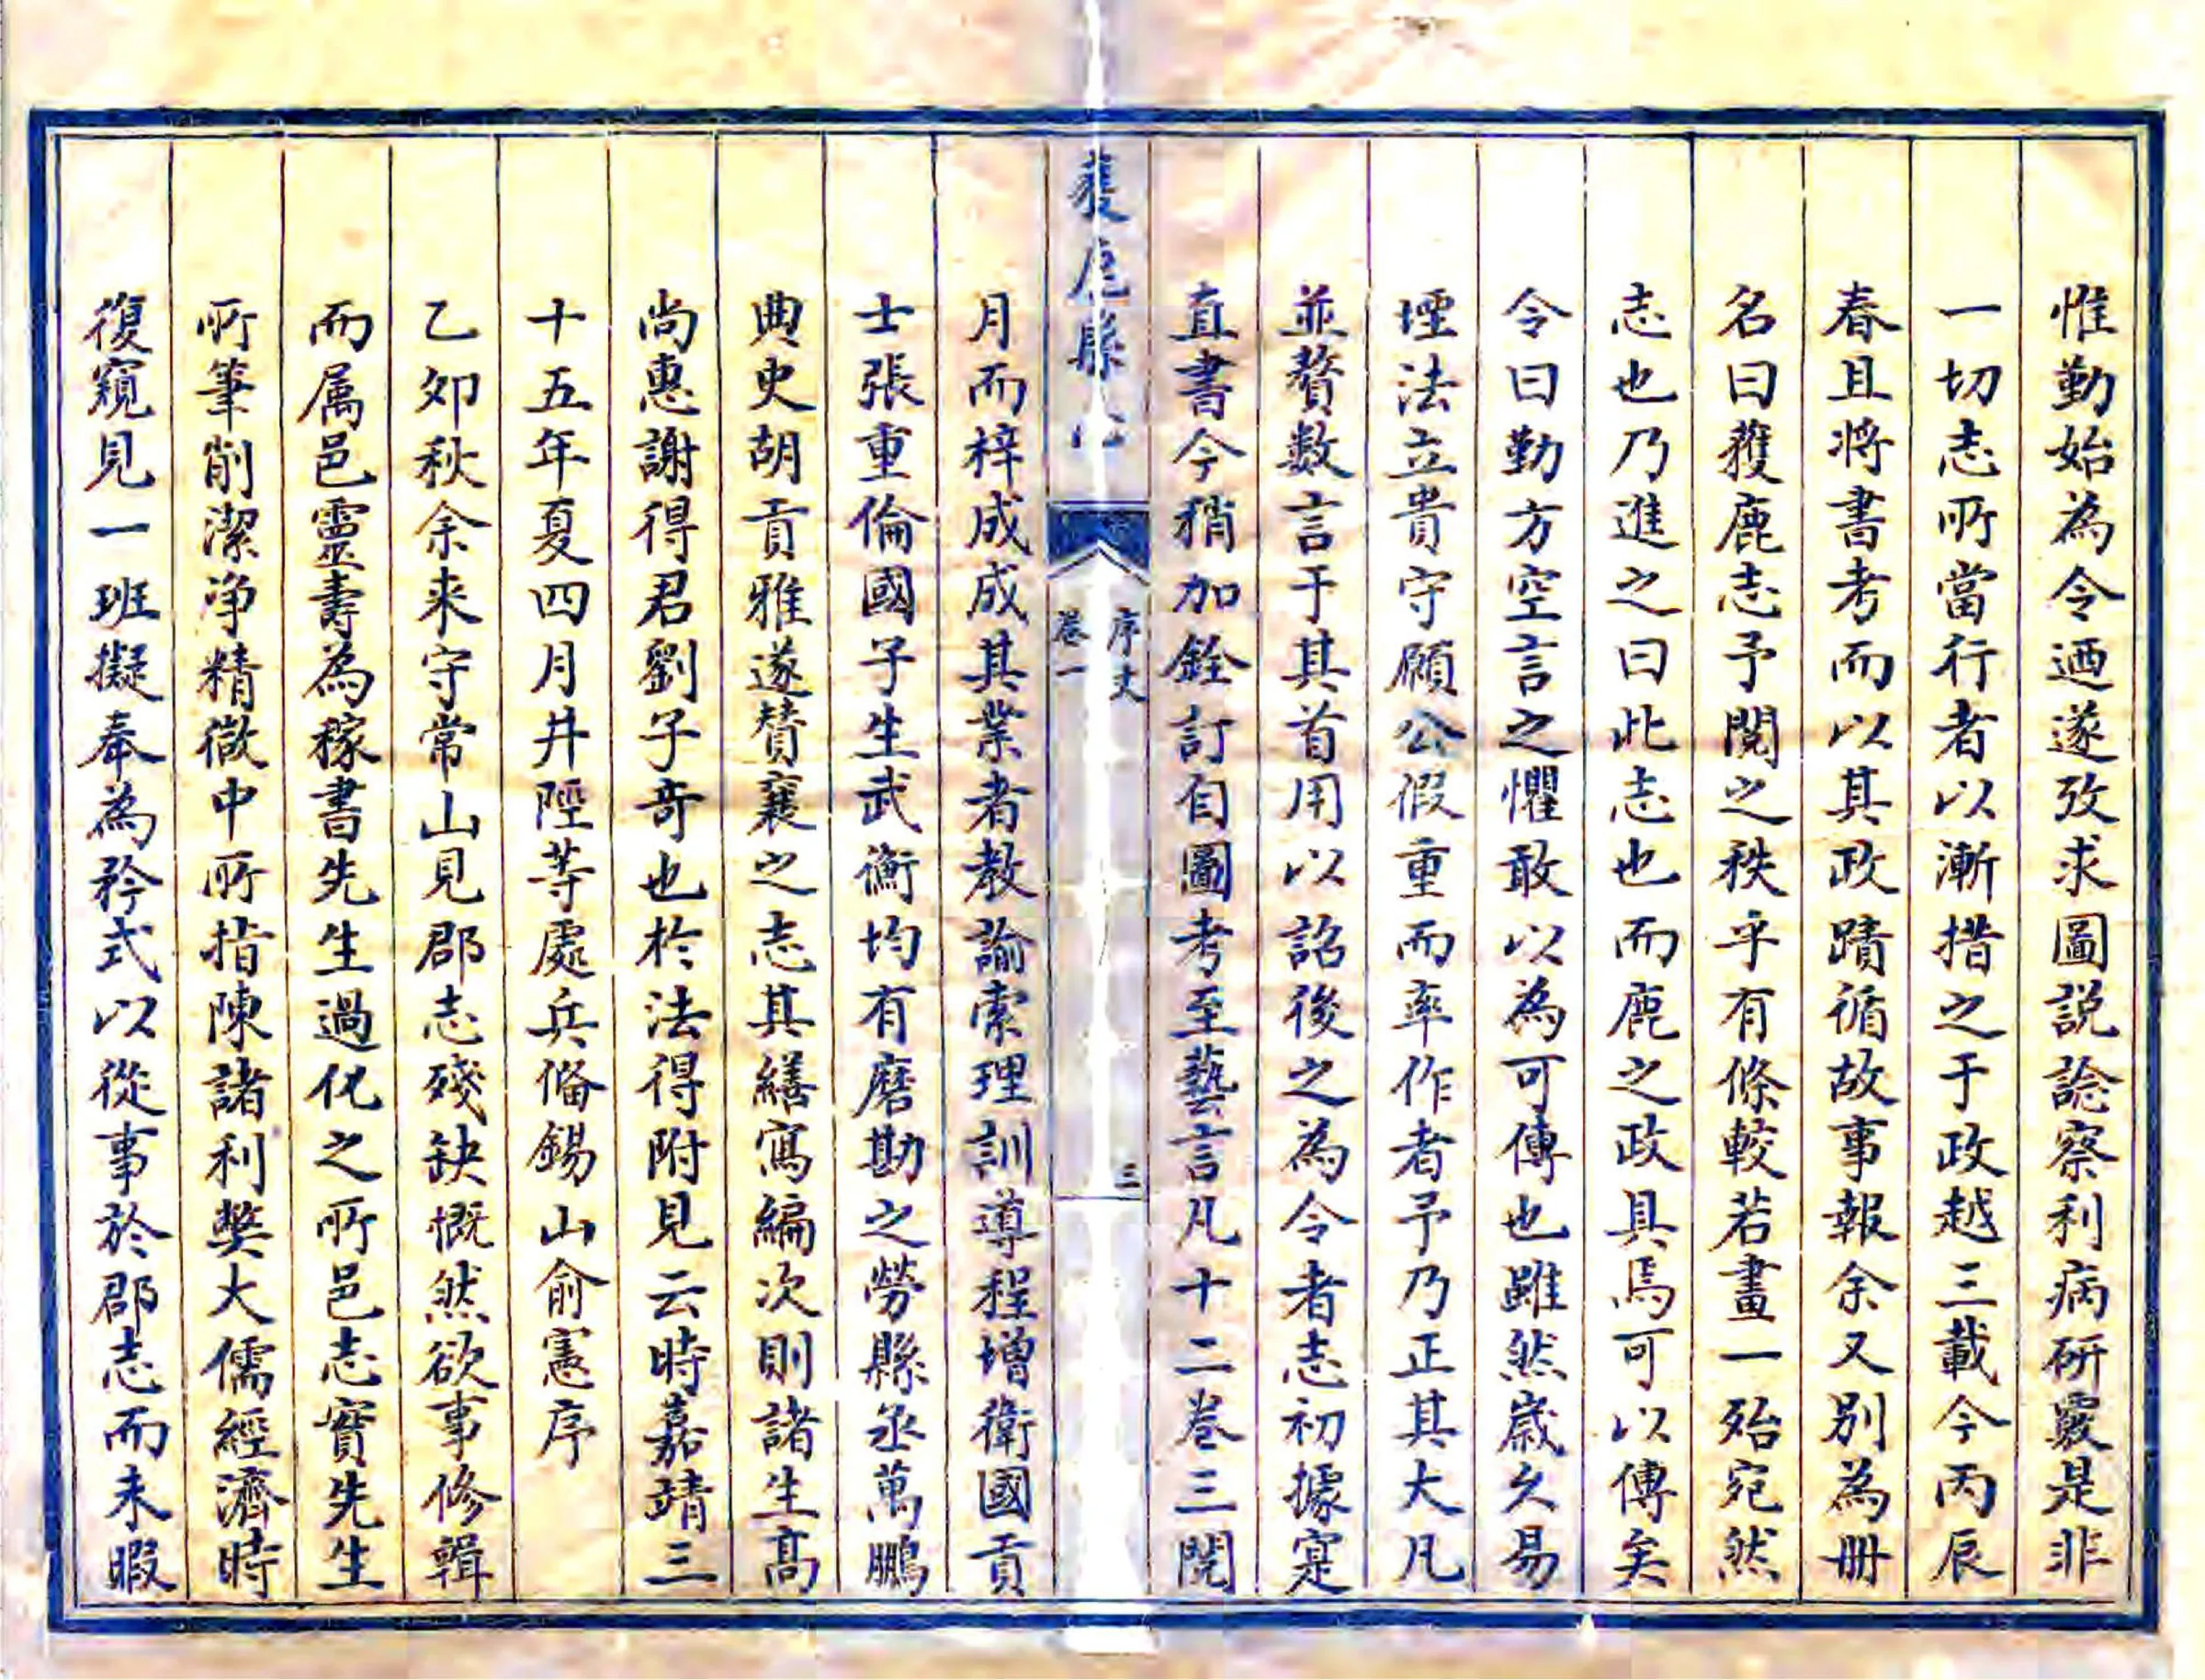 惟勤始為令迺遂攷求圖說諗察利病研覈是非
一切志所當行者以漸措之于政越三載今丙辰
春且將書考而以其政蹟循故事報余又別為册
名曰獲鹿志予閱之秩乎有條較若畫一殆宛然
志也乃進之曰此志也而鹿之政具焉可以傳矣
令曰勤方空言之懼敢以為可傳也雖然歲久易
堙法立貴守願公假重而率作者予乃正其大凡
並贅數言于其首用以詔後之為令者志初據寔
直書今稍加銓訂自圖考至藝言凡十二卷三閱
獲鹿縣
序文
卷一
三
月而梓成成其業者教諭索理訓導程增衛國貢
士張重倫國子生武衡均有磨勘之勞縣丞萬鵬
典史胡貢雅遂贊襄之志其繕寫編次則諸生高
尚惠謝得君劉子奇也於法得附見云時嘉靖三
十五年夏四月井陘等處兵備錫山俞憲序
乙卯秋余来守常山見郡志殘缺慨然欲事修輯
而属邑靈壽為稼書先生過化之所邑志實先生
所筆削潔净精微中所指陳諸利獘大儒經濟時
復窺見一班擬奉為矜式以從事於郡志而未暇